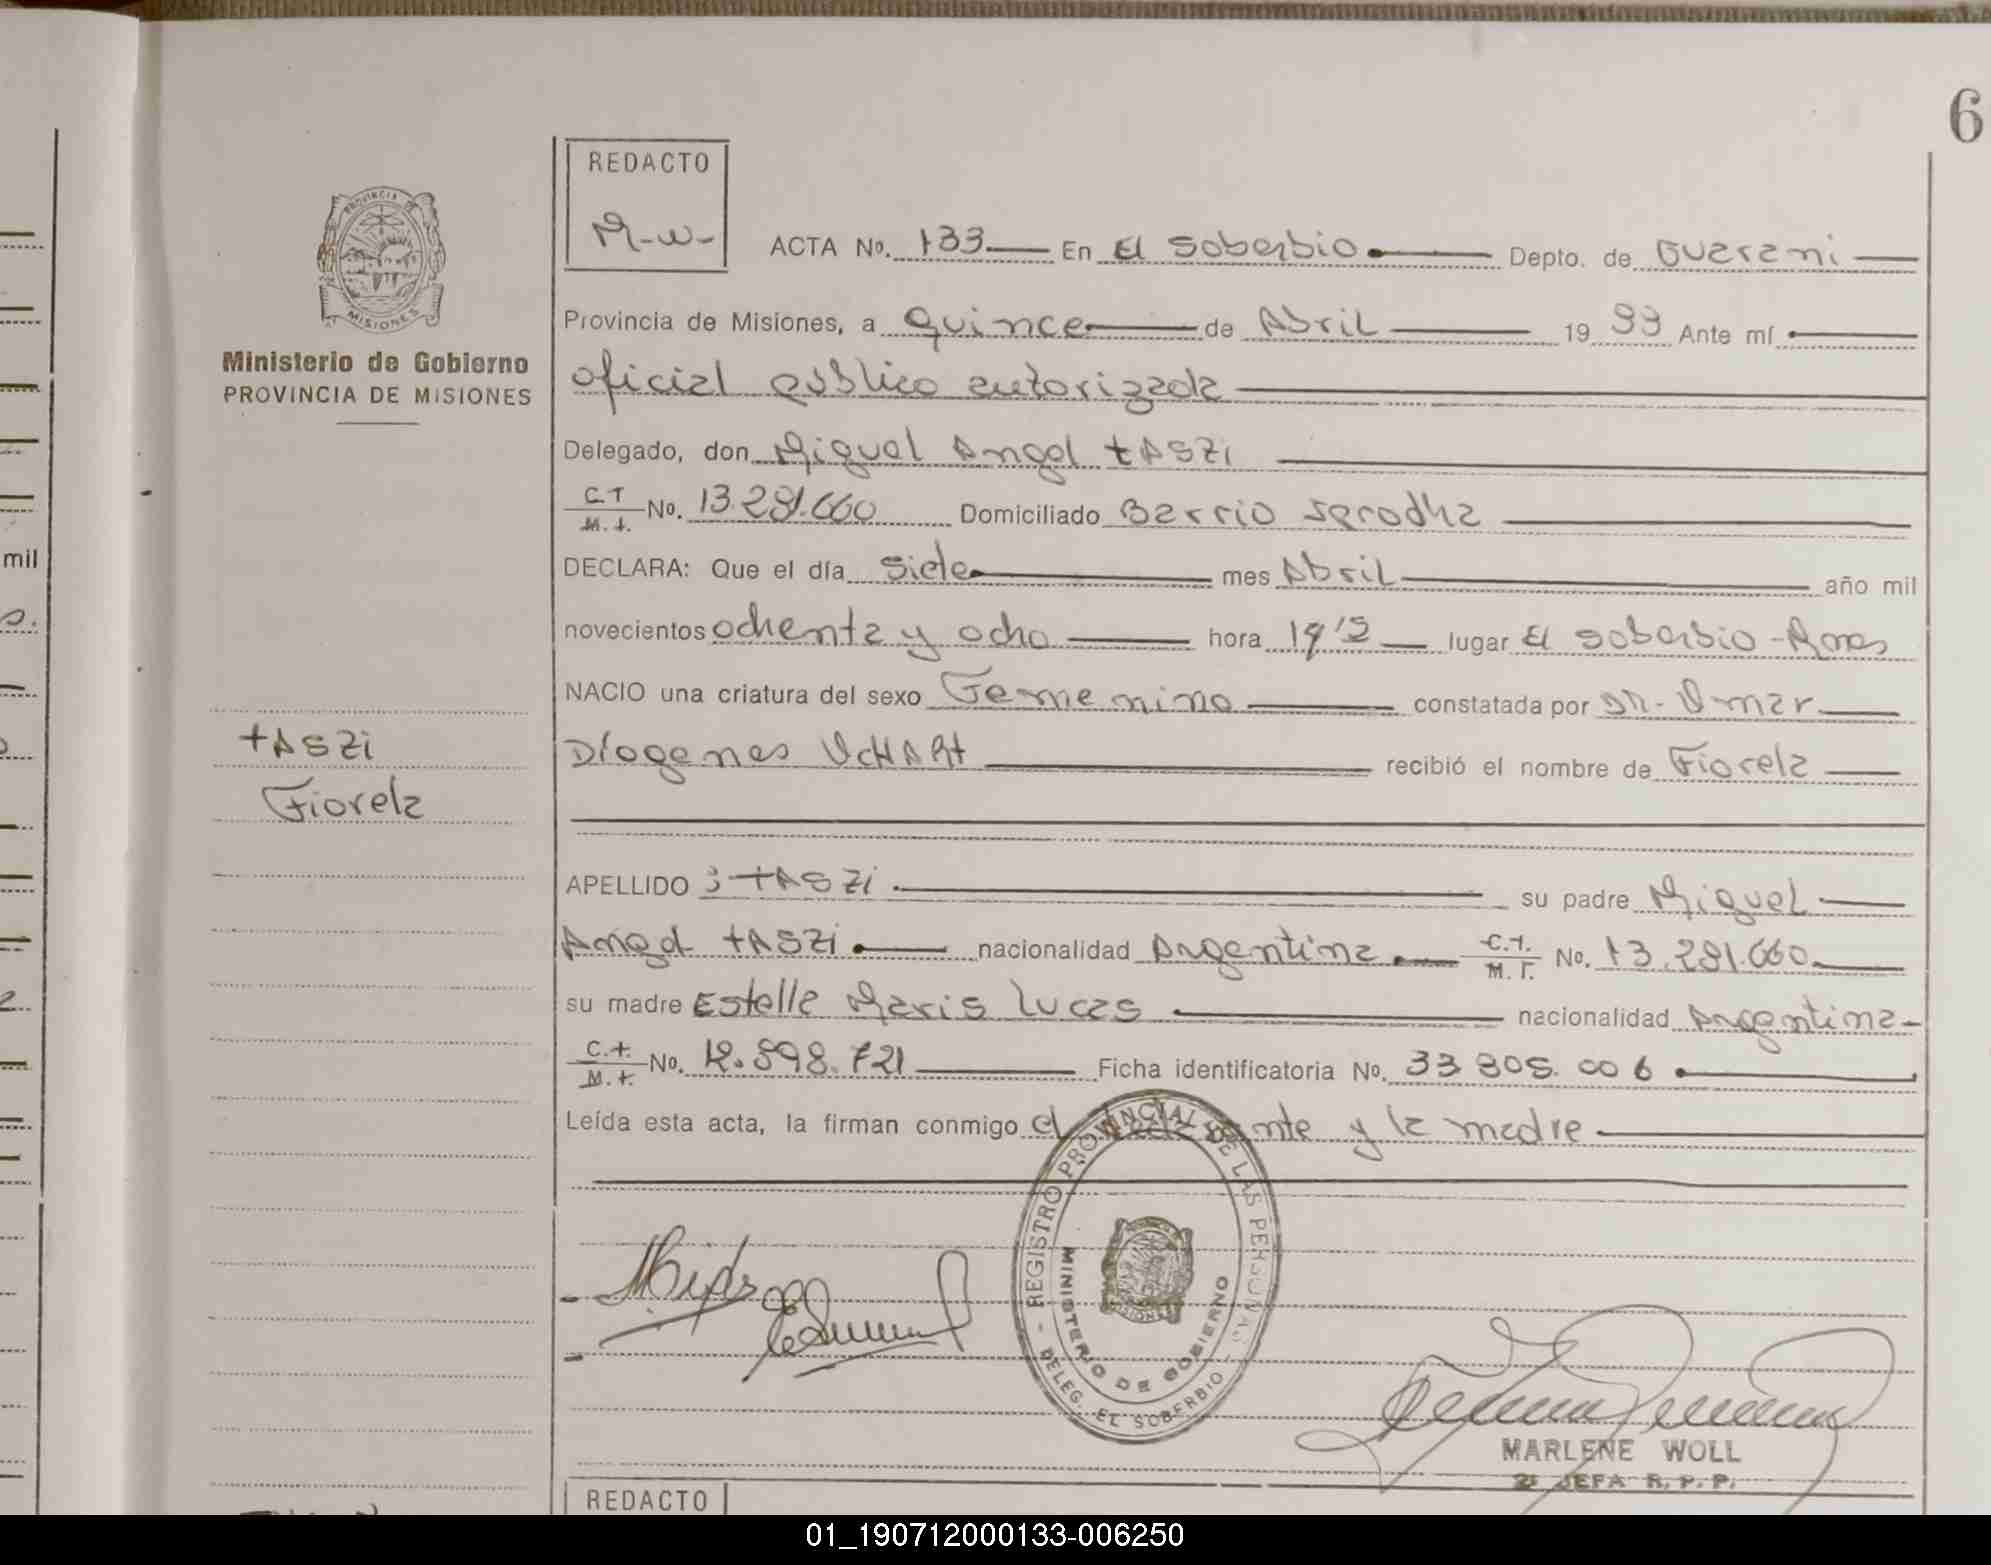 6
REDACTO
M-W-
ACTA No. 133 En El Soberbio Depto. de Guarani
Provincia de Misiones, a quince de Abril 19 Ante mí
oficial público autorizada
Delegado, don Miguel Angel tASZi
C.I. M.I. No. 13.291.660 Domiciliado Barrio
DECLARA: Que el día siete mes Abril año mil
novecientos ochenta y ocho hora lugar El Soberbio - Mnes
NACIO una criatura del sexo Femenino constatada por DR. Omar
Diogenes UCHARt recibió el nombre de Fiorela
APELLIDO : tASZi su padre Miguel
Angel tASZi nacionalidad Argentina C.I. M.I. No. 13.291.660
su madre Estella Maris Lucas nacionalidad Argentina
C.I. M.I. No. 12.898.721 Ficha identificatoria No. 33 905.006
Leída esta acta, la firman conmigo el declarante y la madre
PROVINCIA DE
MISIONES
Ministerio de Gobierno
PROVINCIA DE MISIONES
tASZi
Fiorela
mil
REGISTRO PROVINCIAL DE LAS PERSONAS
MINISTERIO DE GOBIERNO
DELEG. EL SOBERBIO
MARLENE WOLL
JEFA R.P.P.
REDACTO
01_190712000133-006250